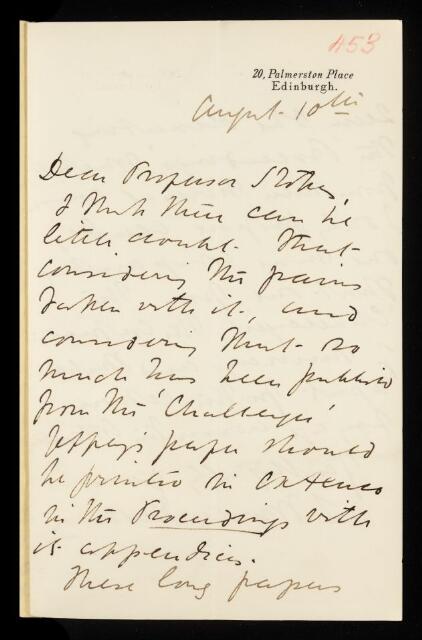 453
20, Palmerston Place
Edinburgh.
August 10th
Dear Professor Stokes,
I think there can be
little doubt that
considering the pains
taken with it, and
considering that so
much has been published
from the 'Challenger'
paper should
be printed in extenso
in the Proceedings with
its appendices.
These long papers